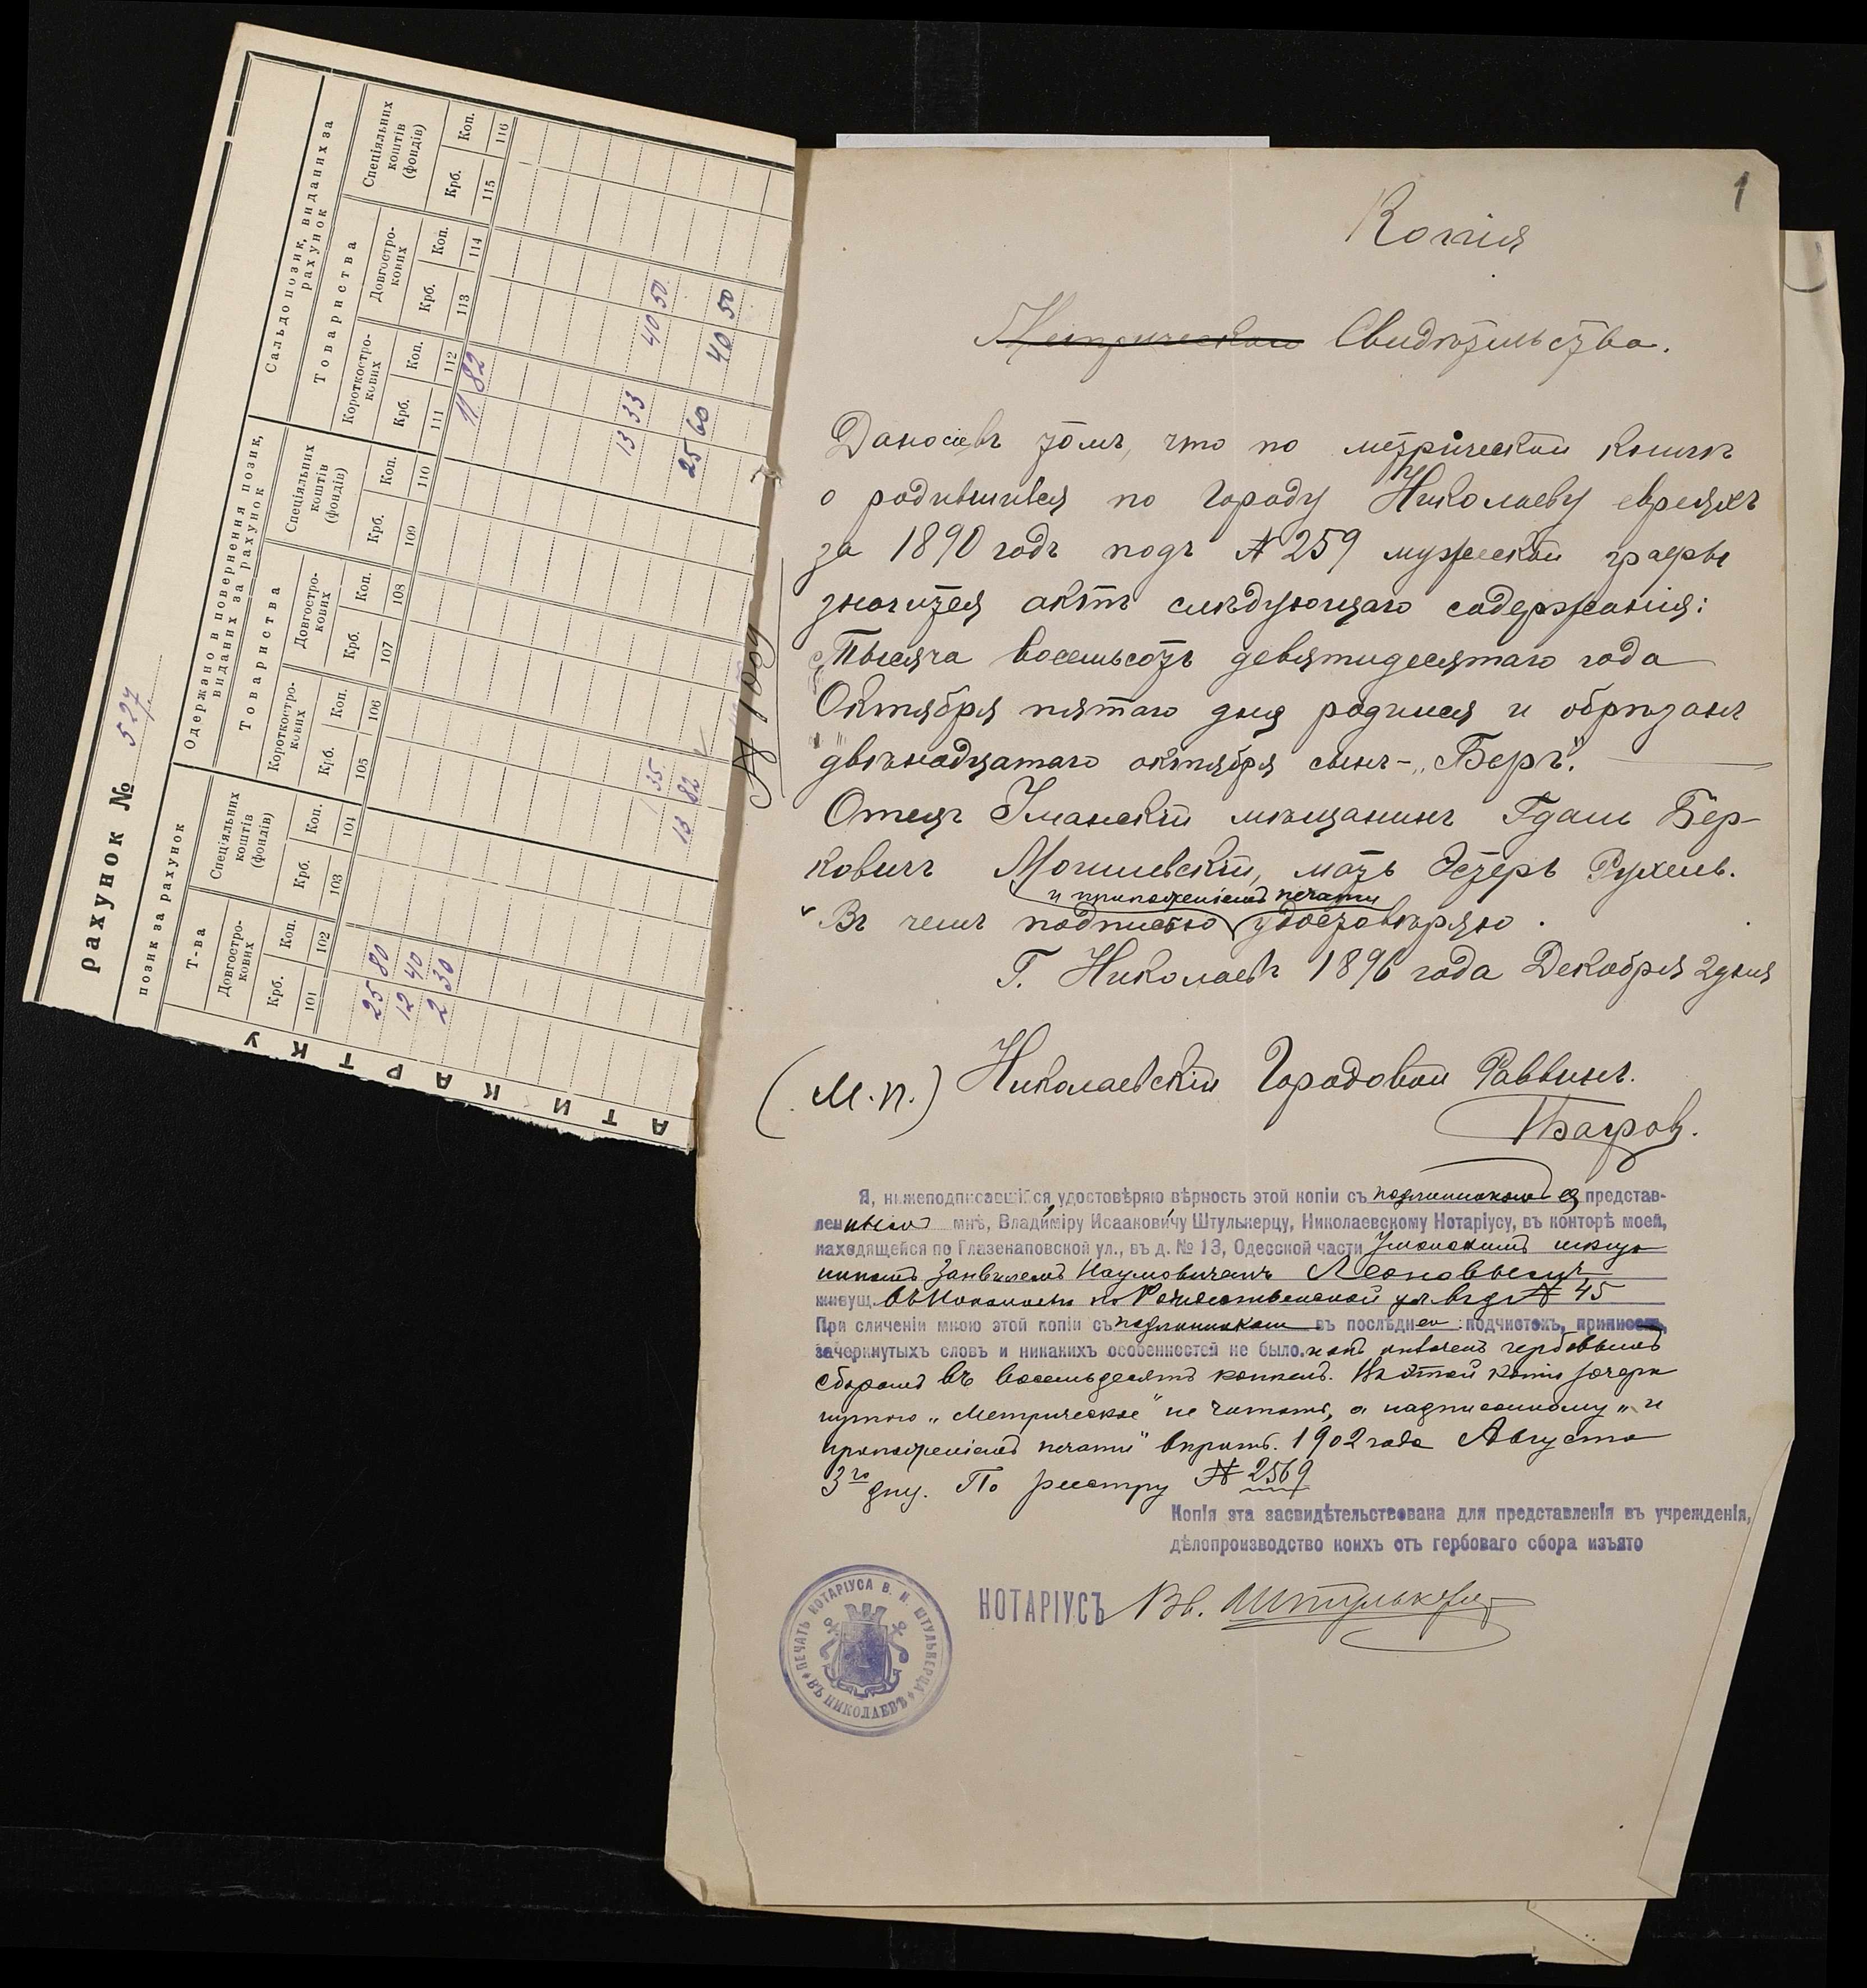 1
Копія
Метрическое Свидѣтельство.
Дано сіе въ томъ, что по метрической книгѣ
о родившихся по городу Николаеву евреяхъ
за 1890 годъ подъ № 259 мужской графы
значится актъ слѣдующаго содержанія:
"Тысяча восемьсотъ девятидесятаго года
Октября пятаго дня родился и обрѣзанъ
двѣнадцатаго октября сынъ - "Беръ".
Отецъ Уманскій мѣщанинъ Гдаль Бер-
ковичъ Могилевскій, мать Эстеръ Рухель.
и приложеніемъ печати
Въ чемъ подписью удостовѣряю.
Г. Николаевъ 1896 года Декабря 2 дня
(М.П.) Николаевскій Городовой Раввинъ.
Багров.
Я, нижеподписавшійся, удостовѣряю вѣрность этой копіи съ подлинникомъ ея, представ-
леннымъ мнѣ, Владиміру Исааковичу Штулькерцу, Николаевскому Нотаріусу, въ конторѣ моей,
находящейся по Глазенаповской ул., въ д. № 13, Одесской части Уманскимъ мѣща
ниномъ Занвелемъ Наумовичемъ Леоновымъ
живущ. въ Николаевѣ по Рождественской ул. въ д. № 45
При сличеніи мною этой копіи съ подлинникомъ въ послѣднемъ подчистокъ, приписокъ,
зачеркнутыхъ словъ и никакихъ особенностей не было. оплаченъ гербовымъ
сборомъ въ восемьдесятъ копѣекъ. На этой копіи зачерк
нутого "Метрическое" не читать, а надписанному "и
приложеніемъ печати" вѣрить. 1902 года Августа
3го дня. По реестру № 2569
Копія эта засвидѣтельствована для представленія въ учрежденія,
дѣлопроизводство коихъ отъ гербоваго сбора изъято
НОТАРІУСЪ Вл. Штулькерцъ
ПЕЧАТЬ НОТАРІУСА В. И. ШТУЛЬКЕРЦА
ВЪ НИКОЛАЕВѢ
№ 1039
рахунок № 527
позик за рахунок
Одержано в повернення позик,
виданих за рахунок
Сальдо позик, виданих за
рахунок
Т-ва
Спеціяльних
коштів
(фондів)
Товариства
Спеціяльних
коштів
(фондів)
Товариства
Спеціяльних
коштів
(фондів)
Довгостро-
кових
Короткостро-
кових
Довгостро-
кових
Короткостро-
кових
Довгостро-
кових
Крб. Коп. Крб. Коп. Крб. Коп. Крб. Коп. Крб. Коп. Крб. Коп. Крб. Коп. Крб. Коп.
101 102 103 104 105 106 107 108 109 110 111 112 113 114 115 116
11 82
25 80
12 40
2 30
35 13 33 40 50
13 82
25 60 40 50
АТИ КАРТКУ